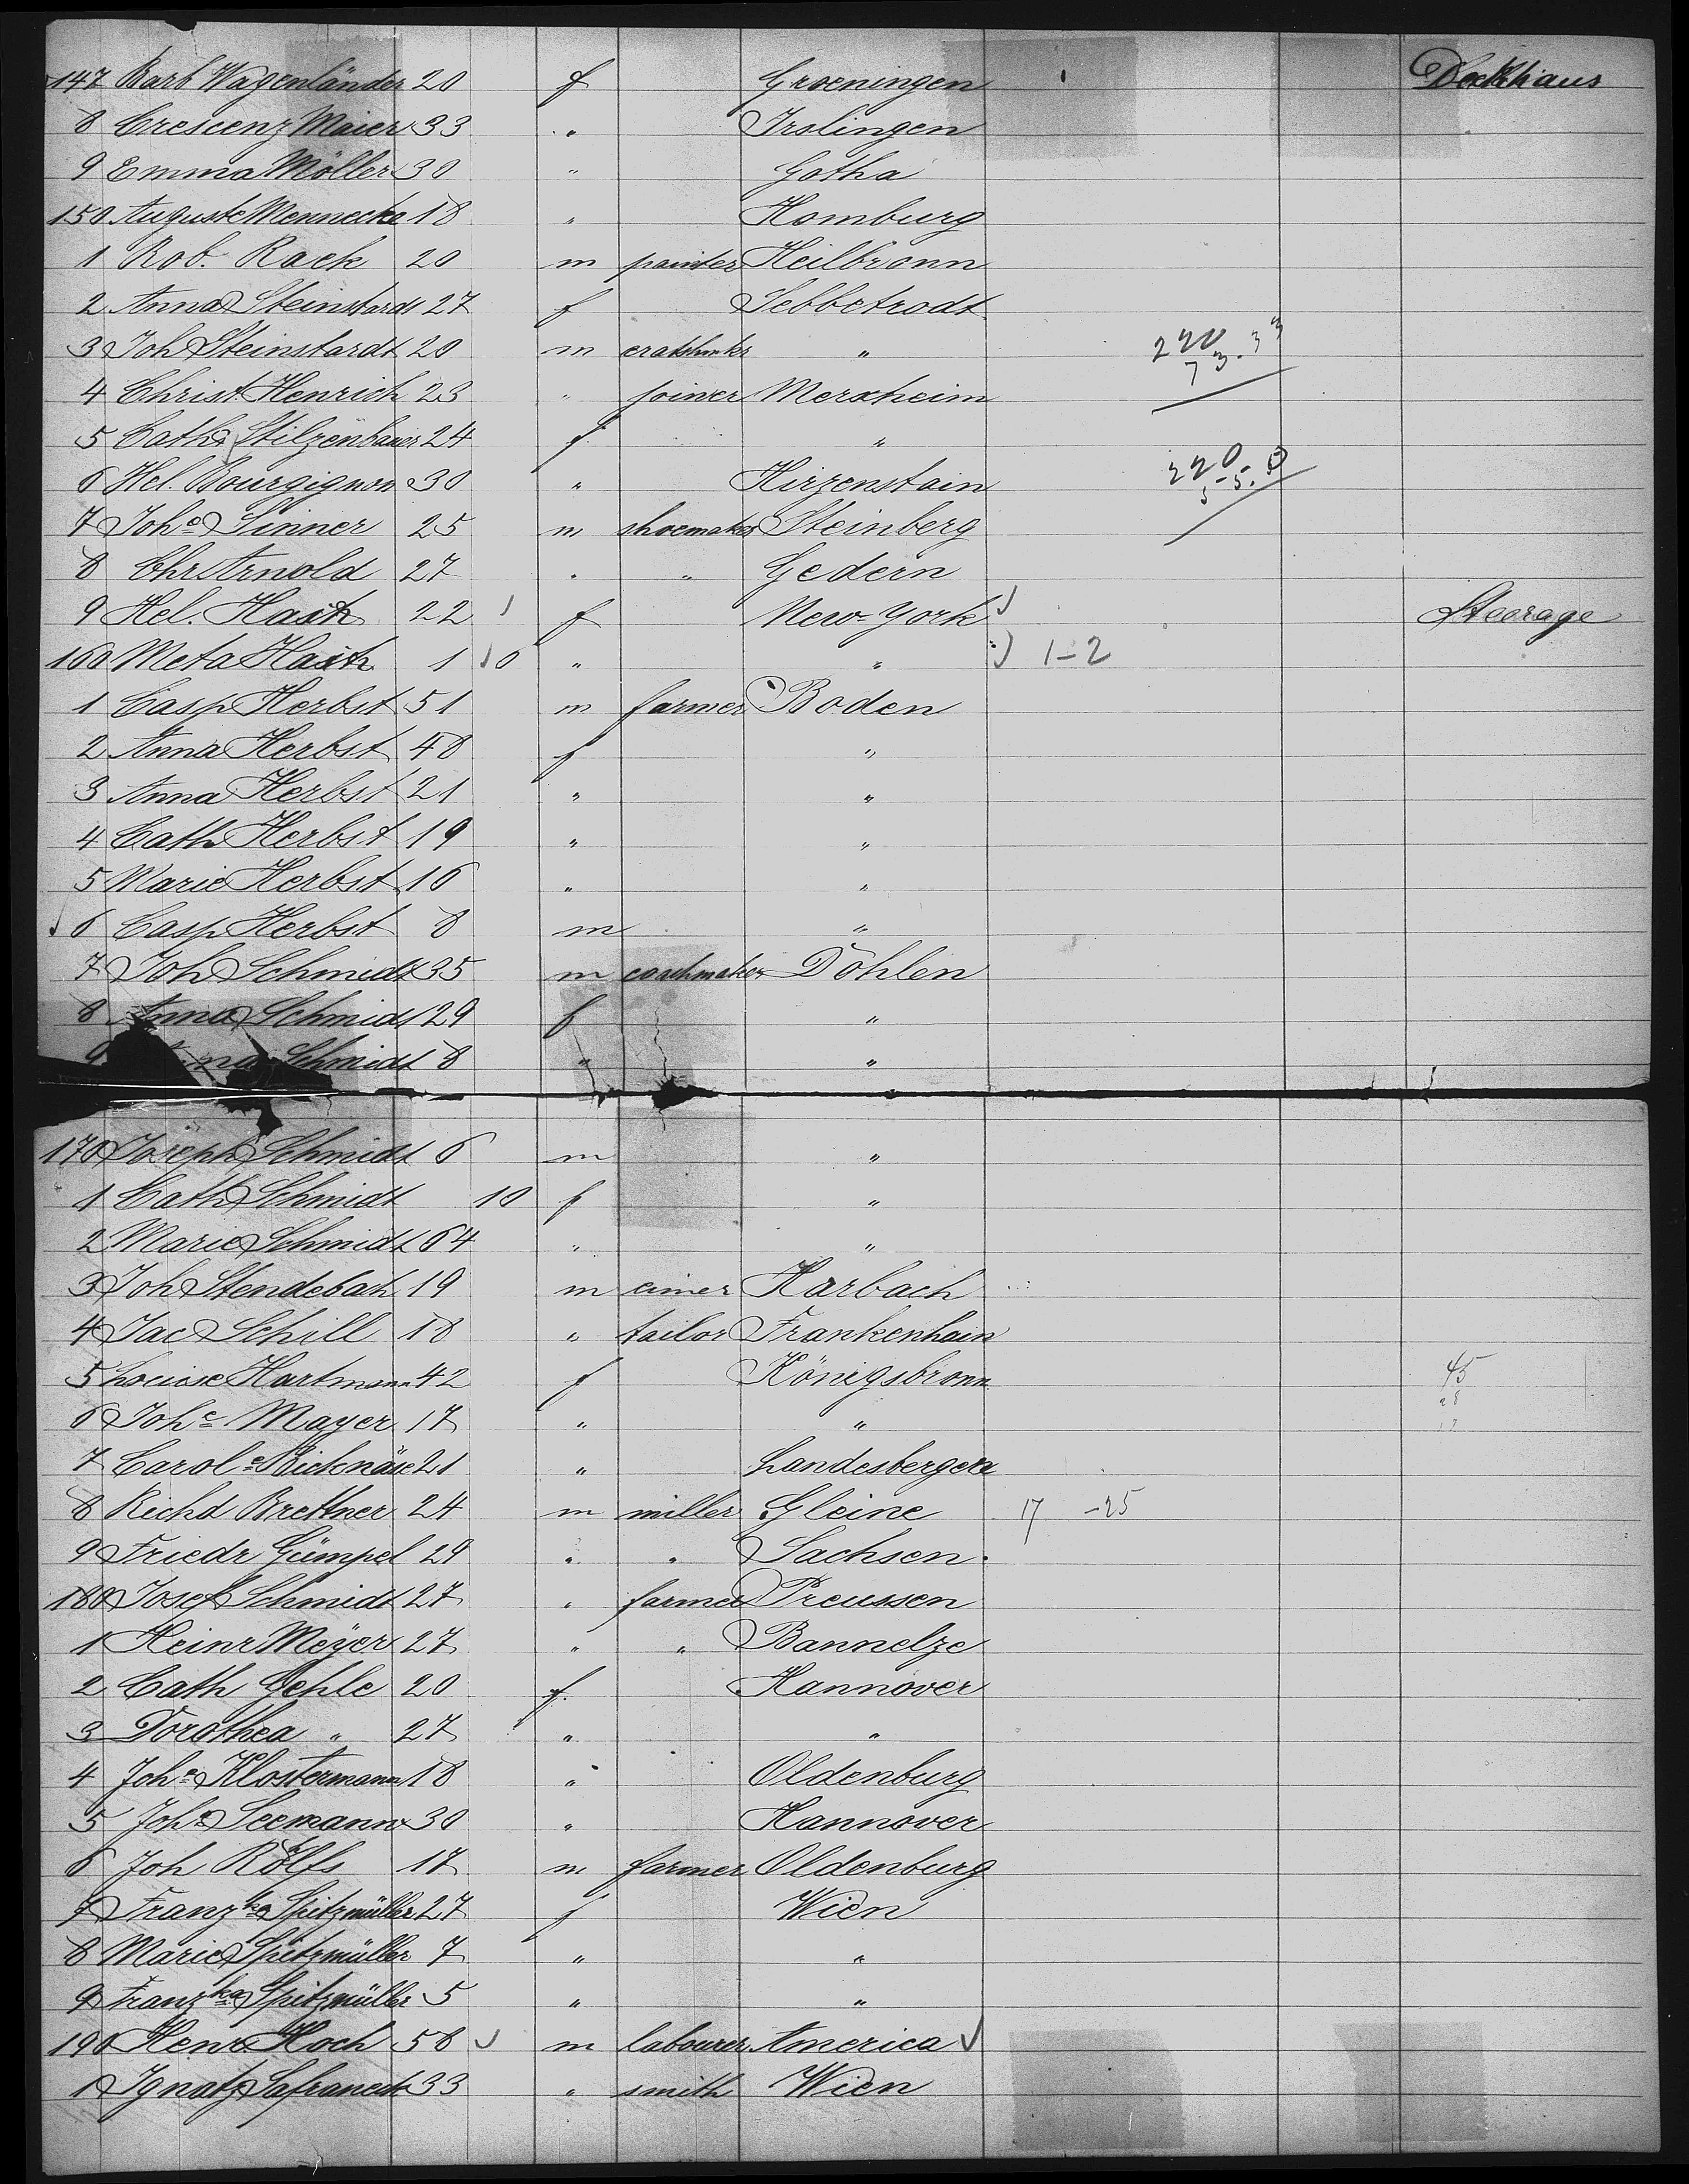 147 Barb Wagenländer 20 f Groeningen Deckhaus
8 Crescenz Maier 33 " Irslingen
9 Emma Möller 30 " Gotha
150 Auguste Mennecke 18 " Homburg
1 Rob. Rack 20 m painter Heilbronn
2 Anna Steinstardt 27 f Sebbetrodt
3 Joh Steinstardt 20 m " 220 73.33
4 Christ Henrich 23 " joiner Merxheim
5 Cath Stilzenbauer 24 f "
6 Hel. Bourgignon 30 " Hirzenstain 220.0
7 Johe Sinner 25 m shoemaker Steinberg
8 Chr Arnold 27 " " Gedern
9 Hel. Haith 22 f New-York Steerage
160 Meta Haith 1 10 " " 1-2
1 Casp Herbst 51 m farmer Boden
2 Anna Herbst 48 f "
3 Anna Herbst 21 " "
4 Cath Herbst 19 " "
5 Marie Herbst 16 " "
6 Casp Herbst 8 m "
7 Joh Schmidt 35 m coachmaker Döhlen
8 Anna Schmidt 29 f "
9 Schmidt 8 " "
170 Joseph Schmidt 6 m "
1 Cath Schmidt 10 f "
2 Marie Schmidt 64 " "
3 Joh Stendebach 19 m Harbach
4 Jac Schill 18 " tailor Frankenhain
5 Louise Hartmann 42 f Königsbronn 45
6 Johe Mayer 17 " " 28
7 Carole 21 " Landesbergen
8 Richd Brettner 24 m miller Gleine 17 -25
9 Friedr Gümpel 29 " " Sachsen
180 Josef Schmidt 27 " farmer Preussen
1 Heinr Meyer 27 " " Bannelze
2 Cath Gehle 20 f. Hannover
3 Dorothea " 27 " "
4 Johe Klostermann 18 " Oldenburg
5 Johe Seemann 30 " Hannover
6 Joh Rolfs 17 m farmer Oldenburg
7 Franzka Spitzmüller 27 f Wien
8 Marie Spitzmüller 7 " "
9 Franzka Spitzmüller 5 " "
190 Henr Hoch 58 m labourer America
1 Ignatz Safraneck 33 " smith Wien